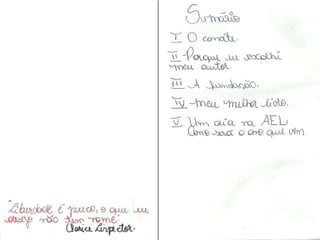 "Liberdade é pouco, o que eu
desejo não tem nome".
Clarice Lispector.
Sumário
I O convite.
II Porque eu escolhi
meu autor.
III A fundação.
IV Meu melhor livro.
V Um dia na AEL.
Como será o ano que vem.